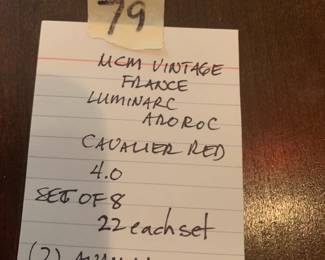 79
MCM VINTAGE
FRANCE
LUMINARC
AROROC
CAVALIER RED
4.0
SET OF 8
22 each set
(2)